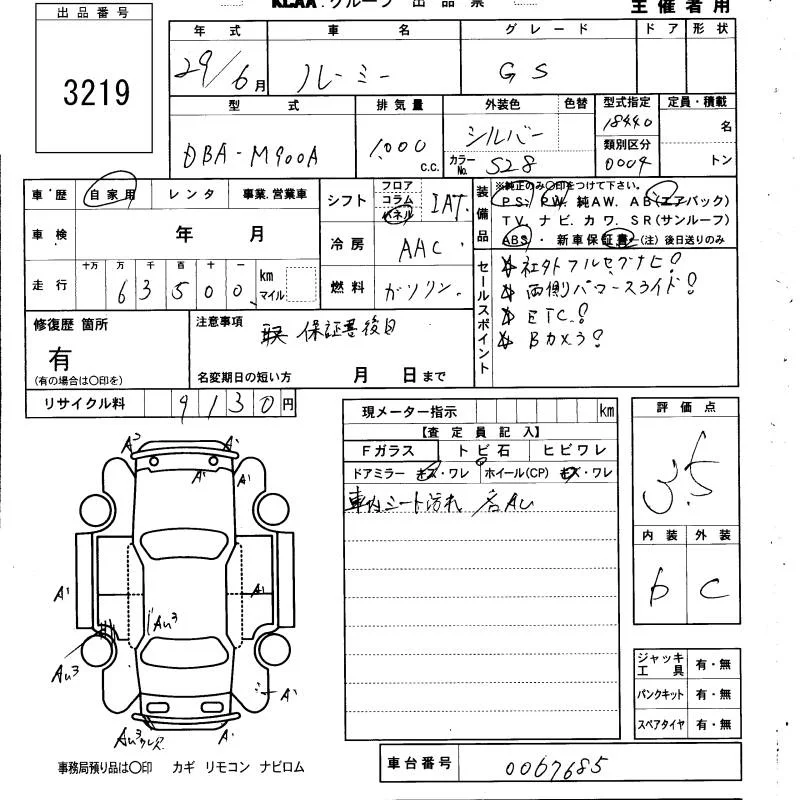 KCAA グループ 出品票
主催者用
出品番号
3219
年式 車名 グレード ドア 形状
29/6月 ルーミー GS
型式 排気量 外装色 色替 型式指定 定員・積載
DBA-M900A 1000 c.c. シルバー 18440 名
カラーNo. S28 類別区分 0004 トン
車歴 自家用 レンタ 事業.営業車
シフト フロア コラム パネル IAT
装備品 ※純正のみ○印をつけて下さい。
PS. PW. 純AW. AB(エアバック)
TV. ナビ. カワ. SR(サンルーフ)
ABS・ 新車保証書←(注)後日送りのみ
車検 年 月
冷房 AAC
走行 十万 万 千 百 十 一 km マイル
63500
燃料 ガソリン.
セールスポイント
社外フルセグナビ!
両側パワースライド!
ETC!
Bカメラ!
修復歴 箇所
有
(有の場合は○印を)
注意事項
保証書後日
名変期日の短い方 月 日まで
リサイクル料 9130円
現メーター指示 km
【査定員記入】
Fガラス トビ石 ヒビワレ
ドアミラー キズ・ワレ ホイール(CP) キズ・ワレ
車内シート汚れ 各AU
評価点
3.5
内装 外装
b C
A³ A¹
A¹ A¹
A¹ A¹
AU³
AU³
A¹
A¹
ジャッキ工具 有・無
パンクキット 有・無
スペアタイヤ 有・無
事務局預り品は○印 カギ リモコン ナビロム
車台番号 0067685